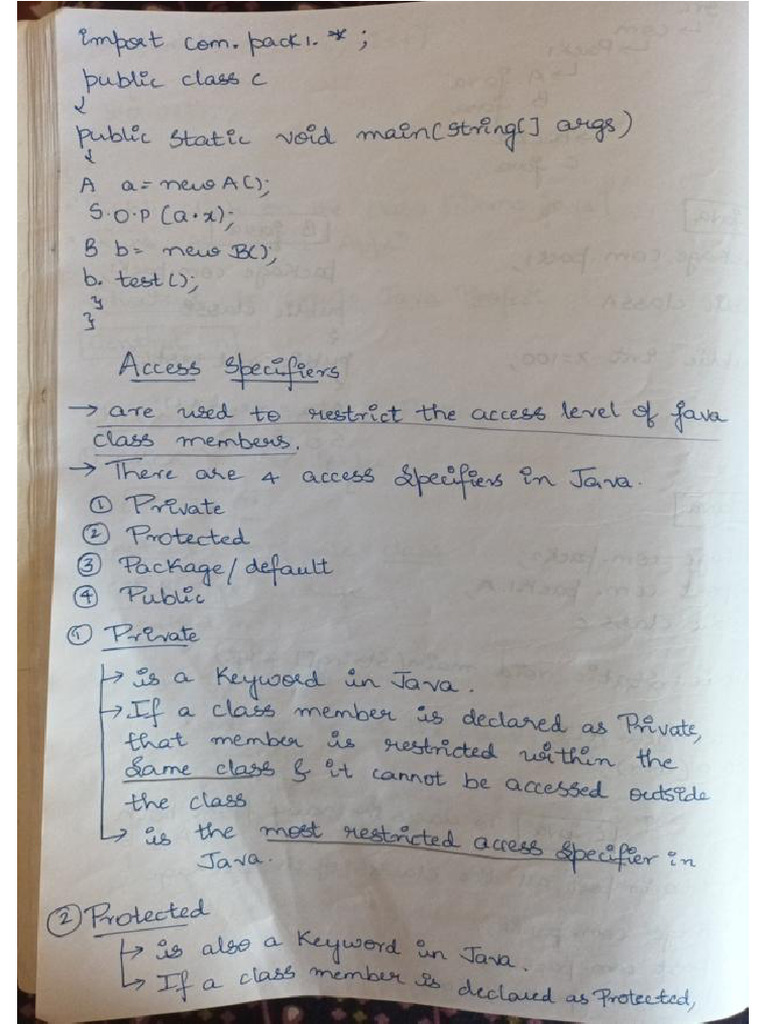 import com.pack1.*;
public class C
{
public static void main(String[] args)
{
A a=new A();
S.O.P(a.x);
B b= new B();
b.test();
}
}
Access Specifiers
→ are used to restrict the access level of Java
class members.
→ There are 4 access Specifiers in Java.
① Private
② Protected
③ Package/default
④ Public
① Private
→ is a Keyword in Java.
→ If a class member is declared as Private,
that member is restricted within the
Same class & it cannot be accessed outside
the class
→ is the most restricted access Specifier in
Java.
② Protected
→ is also a Keyword in Java.
→ If a class member is declared as Protected,